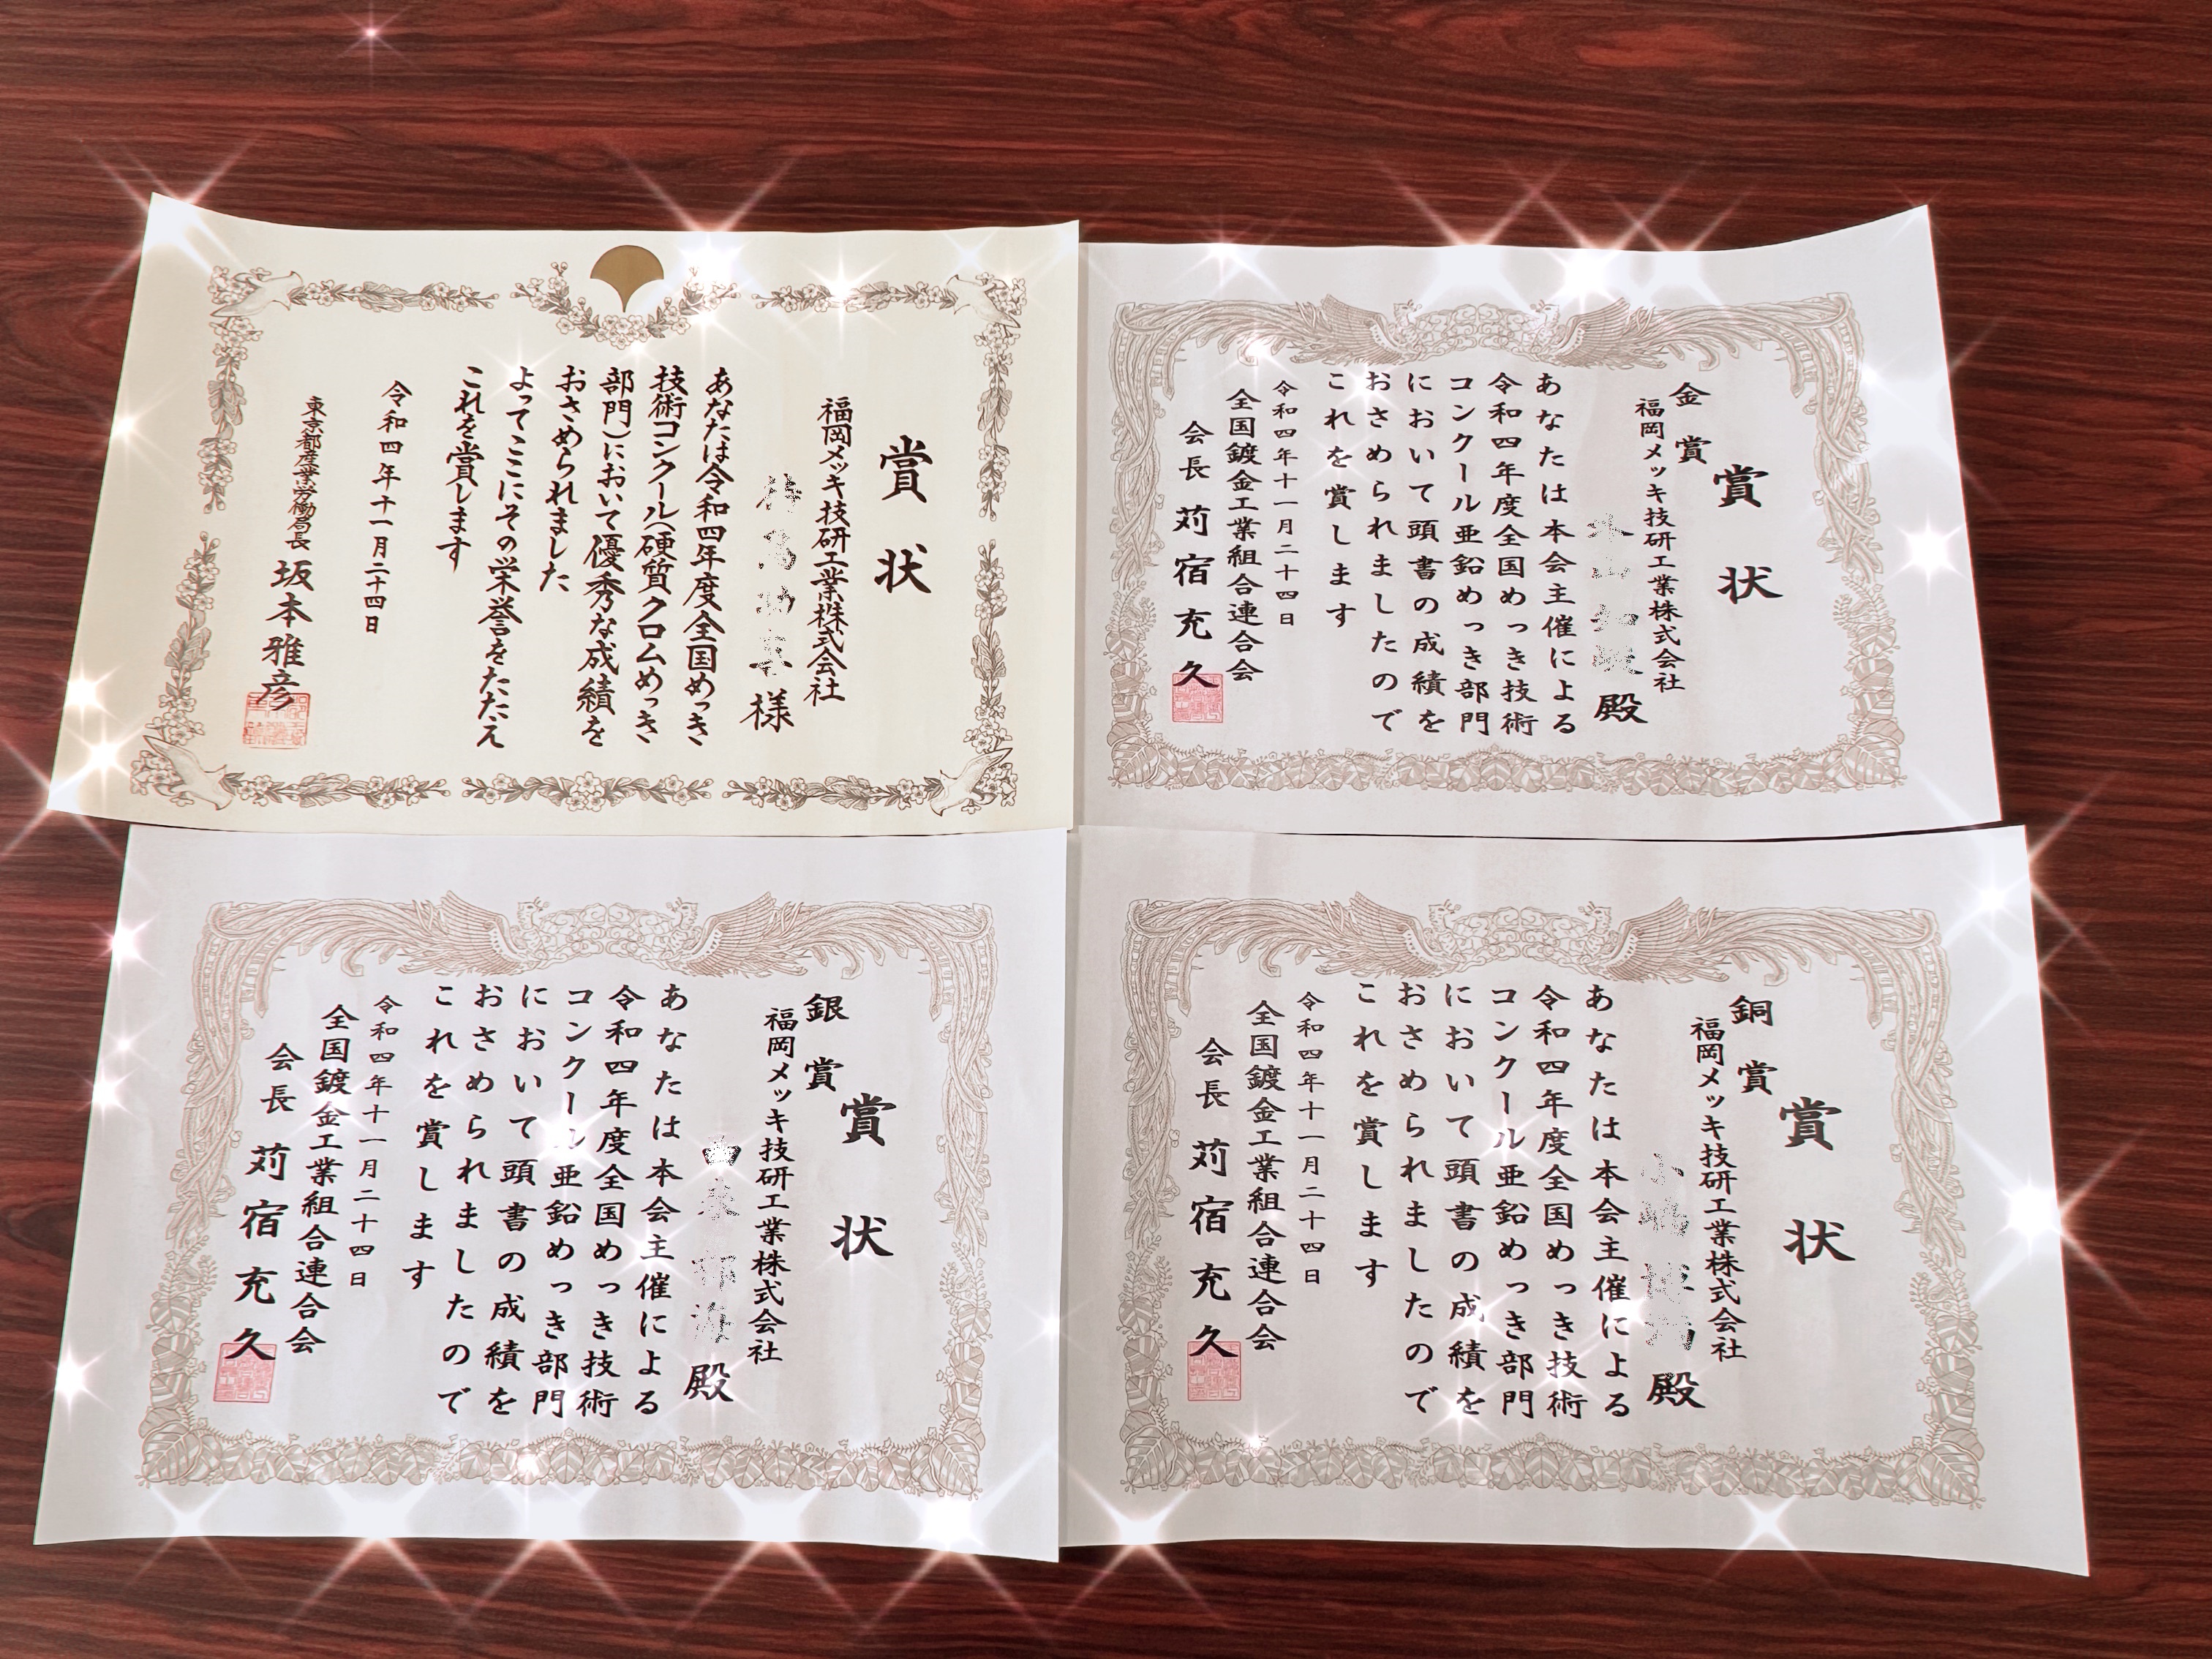 賞状
福岡メッキ技研工業株式会社
様
あなたは令和四年度全国めっき
技術コンクール(硬質クロムめっき
部門)において優秀な成績を
おさめられました
よってここにその栄誉をたたえ
これを賞します
令和四年十一月二十四日
東京都産業労働局長 坂本雅彦
賞状
金賞
福岡メッキ技研工業株式会社
殿
あなたは本会主催による
令和四年度全国めっき技術
コンクール亜鉛めっき部門
において頭書の成績を
おさめられましたので
これを賞します
令和四年十一月二十四日
全国鍍金工業組合連合会
会長 苅宿充久
賞状
銀賞
福岡メッキ技研工業株式会社
殿
あなたは本会主催による
令和四年度全国めっき技術
コンクール亜鉛めっき部門
において頭書の成績を
おさめられましたので
これを賞します
令和四年十一月二十四日
全国鍍金工業組合連合会
会長 苅宿充久
賞状
銅賞
福岡メッキ技研工業株式会社
殿
あなたは本会主催による
令和四年度全国めっき技術
コンクール亜鉛めっき部門
において頭書の成績を
おさめられましたので
これを賞します
令和四年十一月二十四日
全国鍍金工業組合連合会
会長 苅宿充久